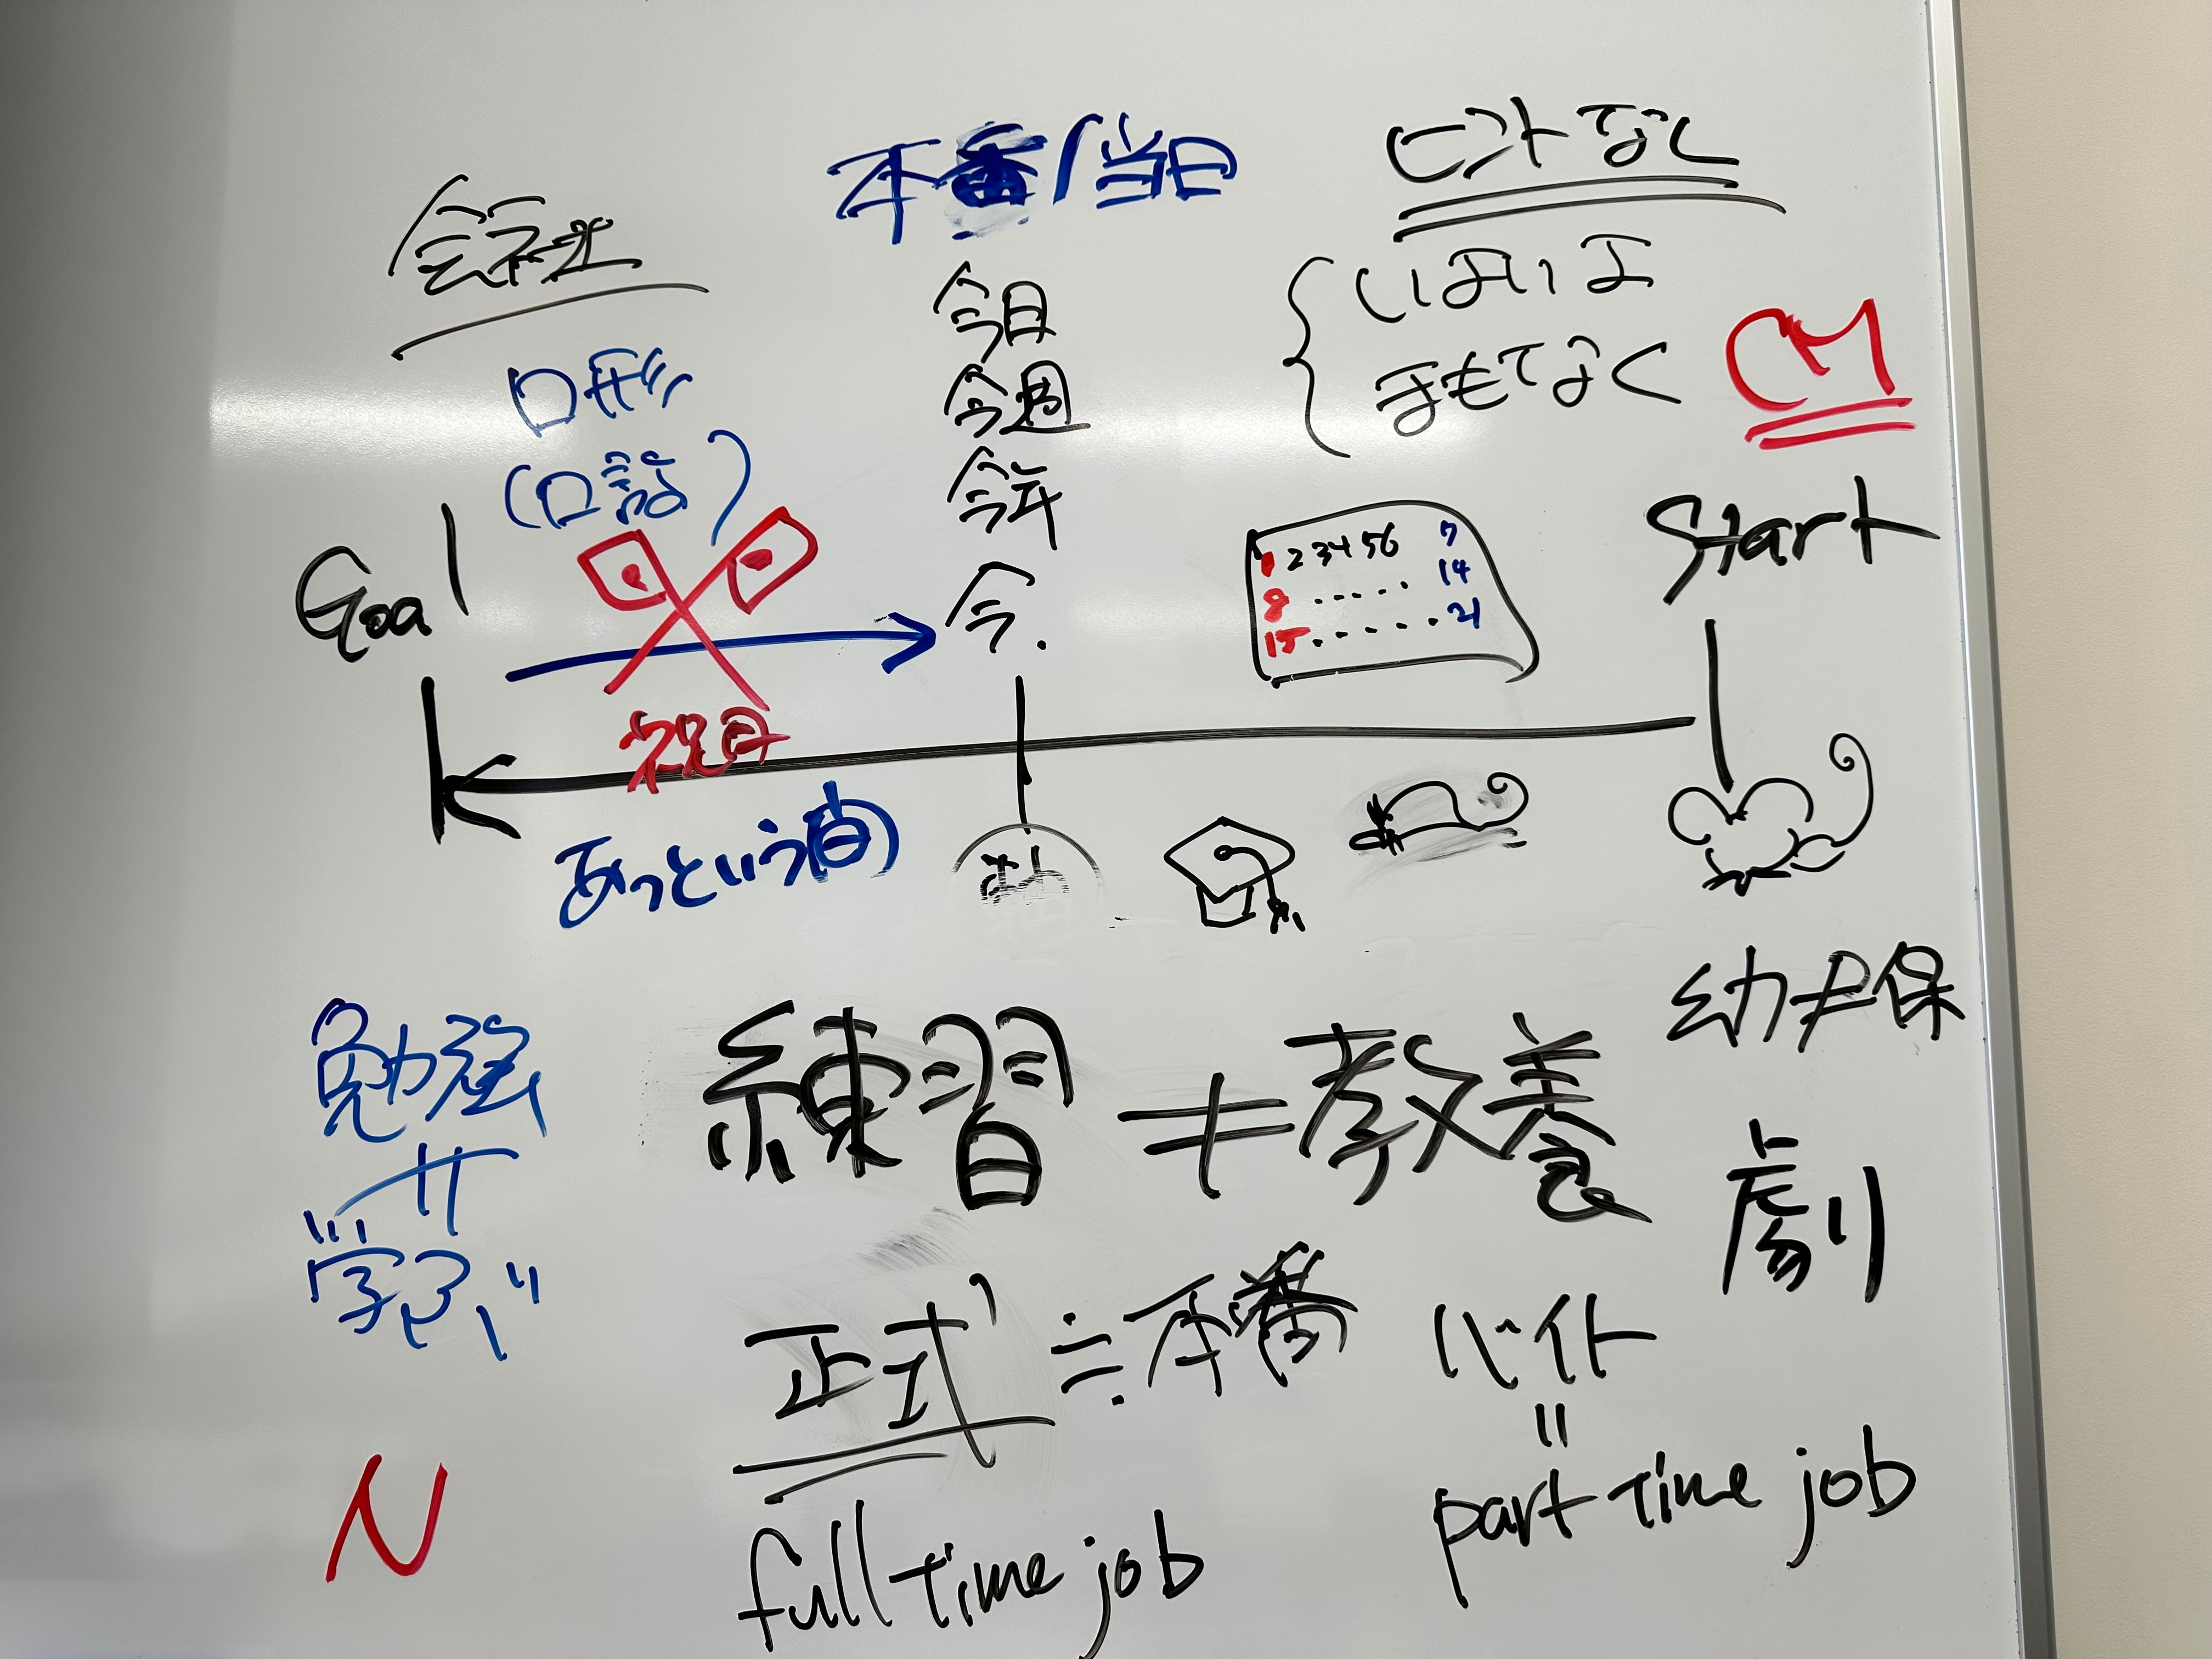 本番/当日
ヒントなし
会社
今日
いよいよ
今週
まもなく
CM
今年
(口語)
今.
Goal
Start
1 2 3 4 5 6 7
8 ..... 14
15 ...... 21
祝日
あっという間
幼≠保
勉強
練習≠教養
学ぶ
劇
正式≒本番
バイト
=
part time job
full time job
N